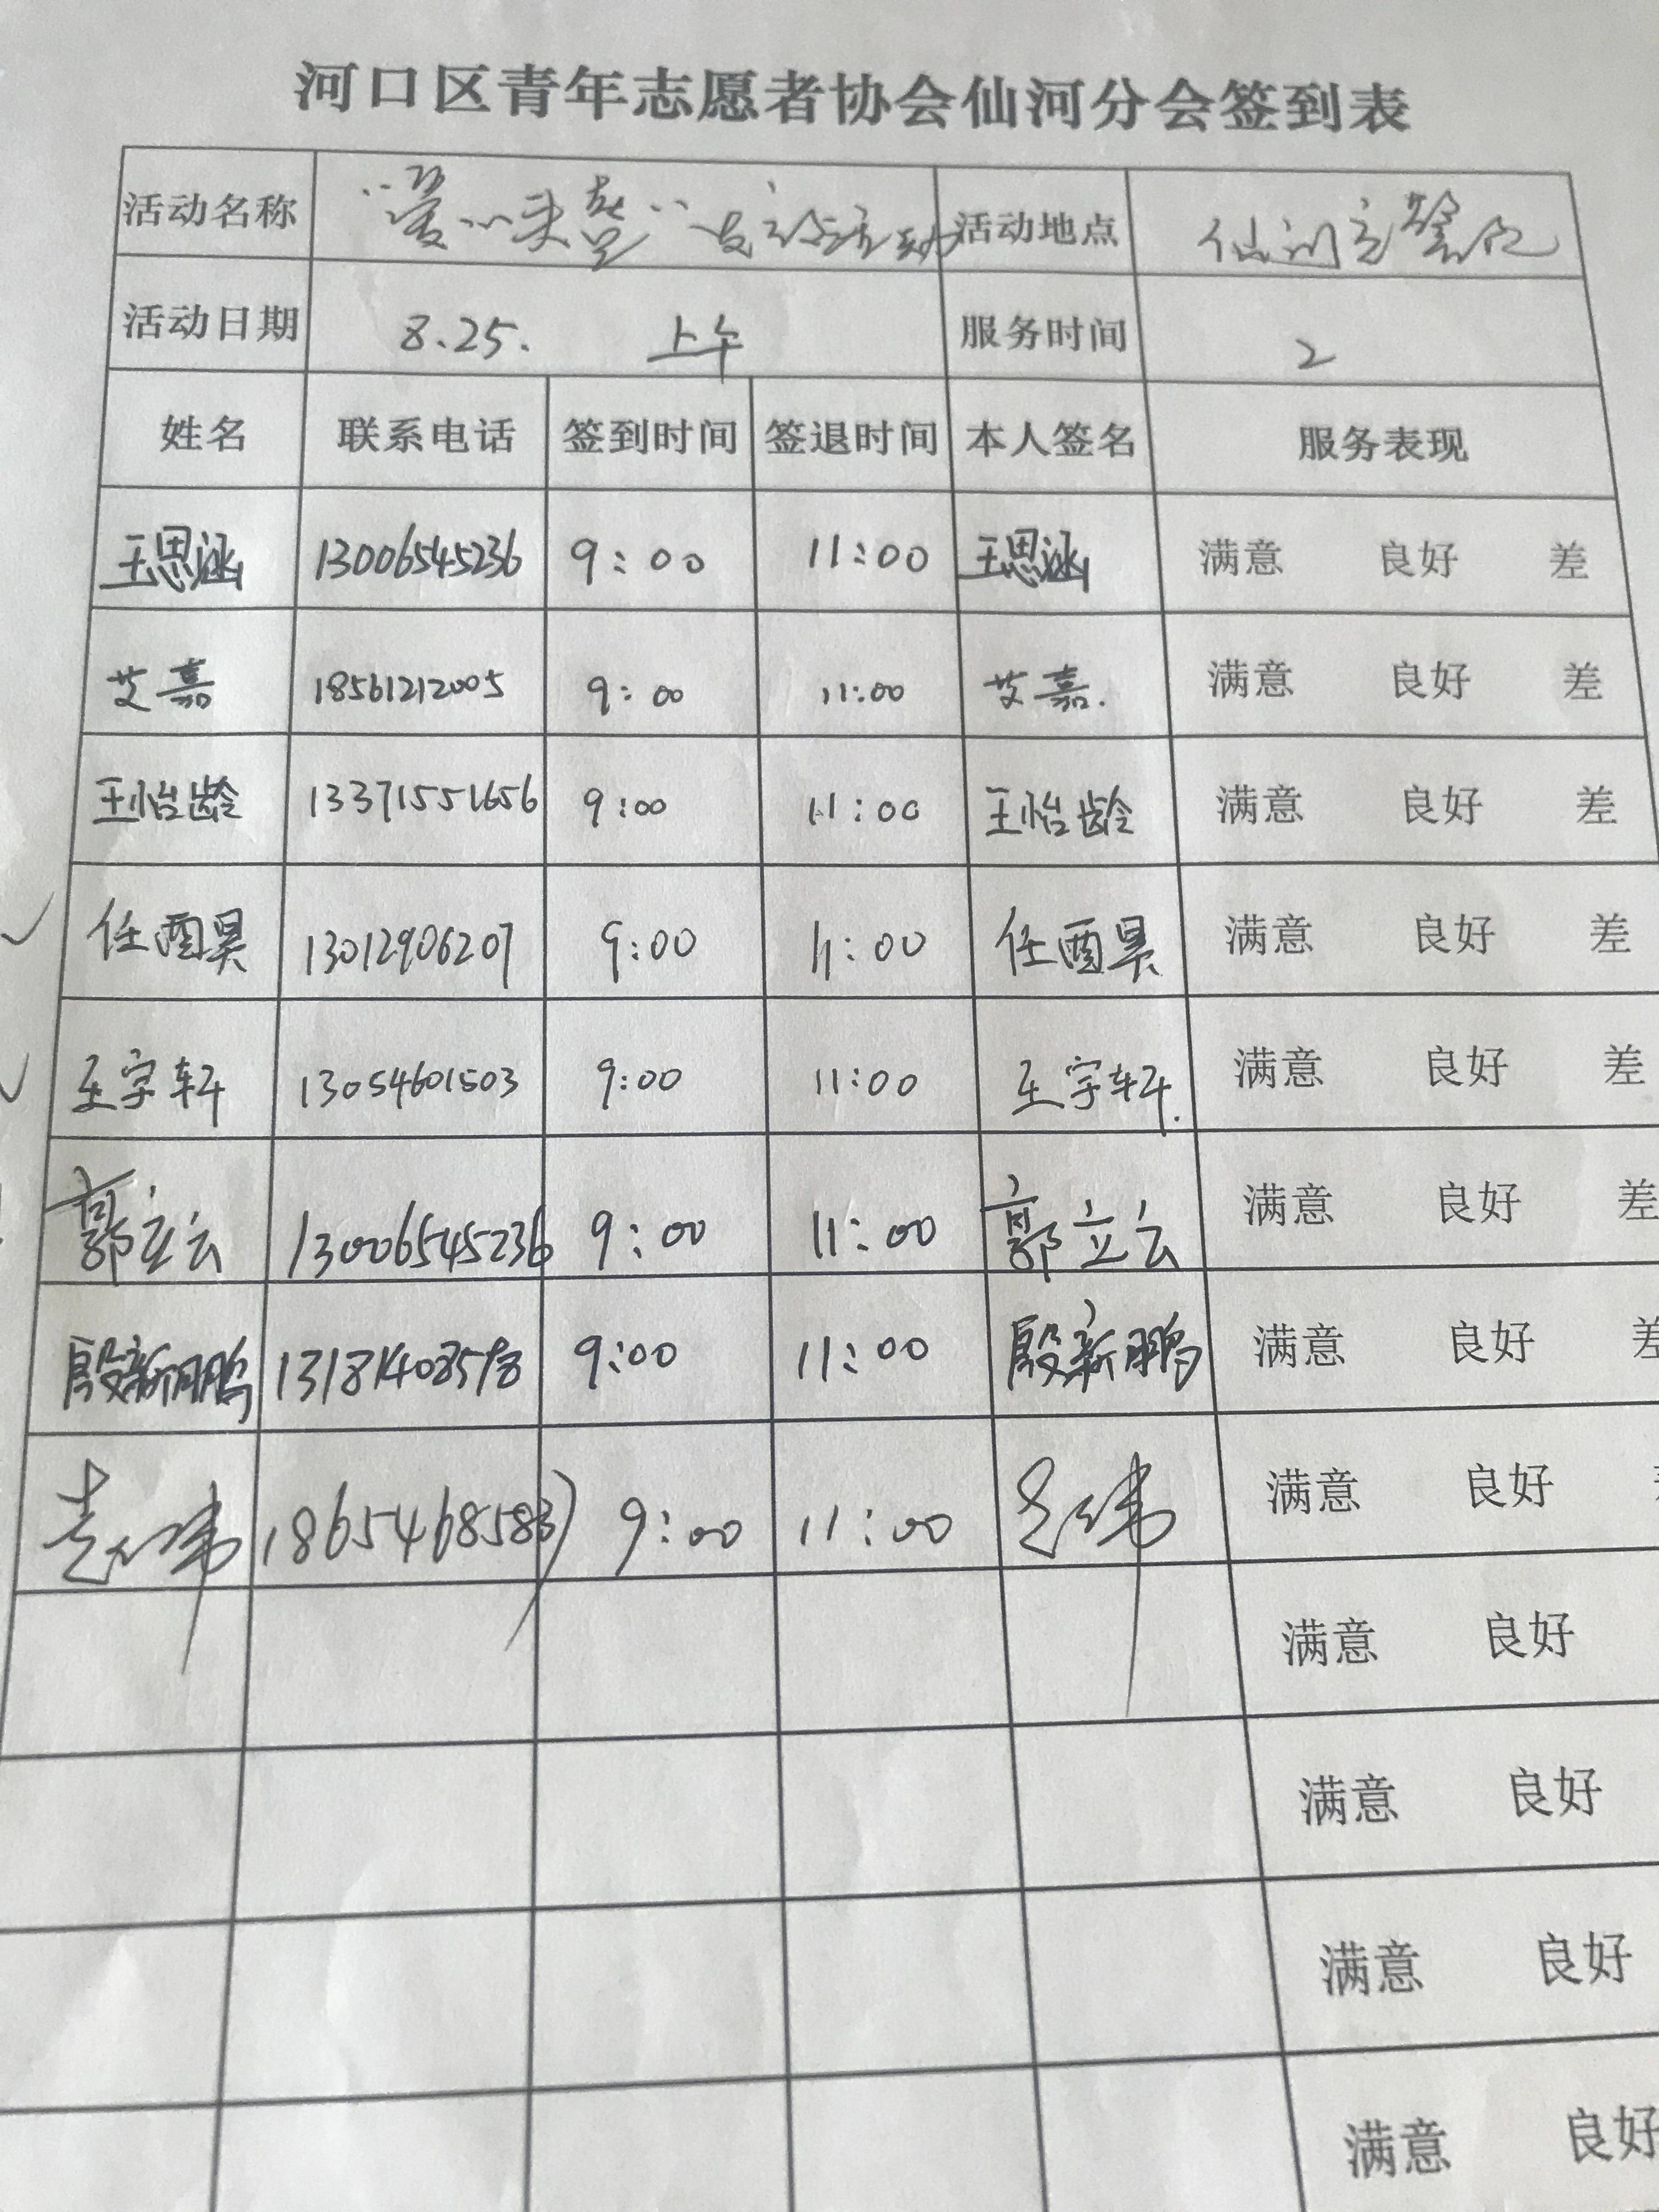 河口区青年志愿者协会仙河分会签到表
活动名称 活动地点
活动日期 8.25. 上午 服务时间 2
姓名 联系电话 签到时间 签退时间 本人签名 服务表现
王思涵 13006545236 9:00 11:00 王思涵 满意 良好 差
艾嘉 18561212005 9:00 11:00 艾嘉. 满意 良好 差
王怡龄 13371551656 9:00 11:00 王怡龄 满意 良好 差
任酉昊 13012906207 9:00 11:00 任酉昊 满意 良好 差
王宇轩 13054601503 9:00 11:00 王宇轩. 满意 良好 差
郭立云 13006545236 9:00 11:00 郭立云 满意 良好 差
殷新鹏 9:00 11:00 殷新鹏 满意 良好 差
18654685837 9:00 11:00 满意 良好
满意 良好
满意 良好
满意 良好
满意 良好